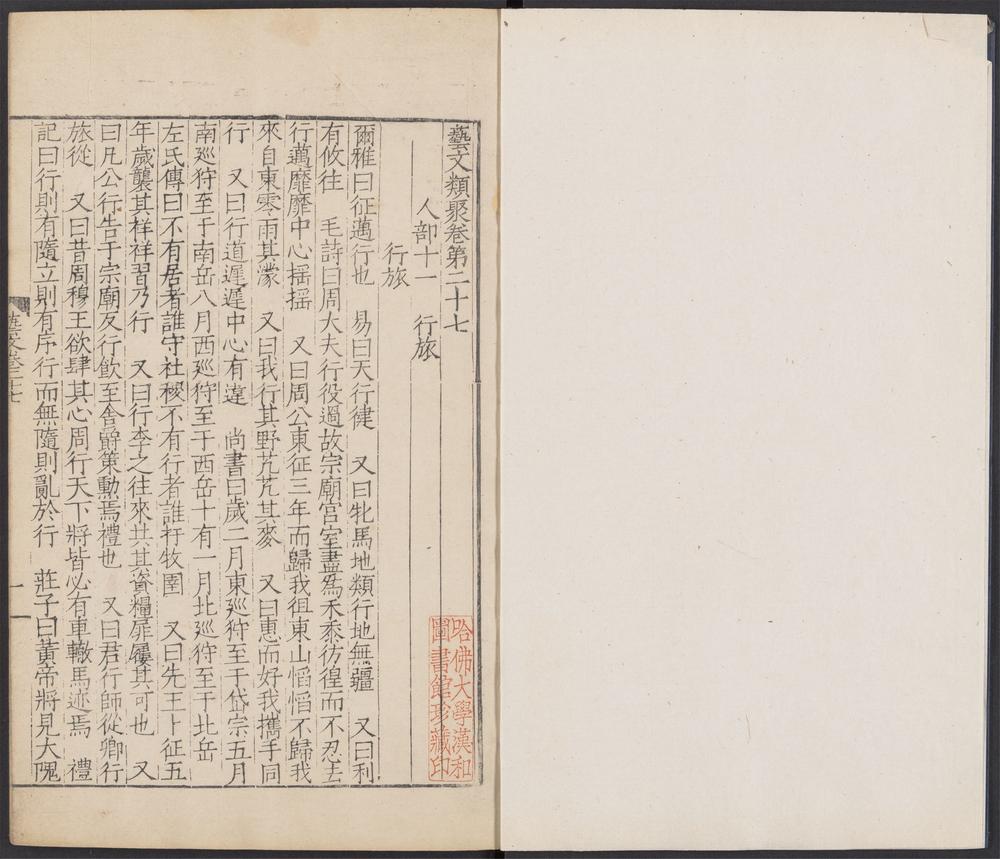 藝文類聚卷第二十七
人部十一　行旅
行旅
爾雅曰征邁行也　易曰天行健　又曰牝馬地類行地無疆　又曰利
有攸往　毛詩曰周大夫行役過故宗廟宫室盡為禾黍彷徨而不忍去
行邁靡靡中心揺揺　又曰周公東征三年而歸我徂東山慆慆不歸我
來自東零雨其濛　又曰我行其野芃芃其麥　又曰惠而好我攜手同
行　又曰行道遲遲中心有違　尚書曰歲二月東廵狩至于岱宗五月
南廵狩至于南岳八月西廵狩至于西岳十有一月北廵狩至于北岳
左氏傳曰不有居者誰守社稷不有行者誰扞牧圉　又曰先王卜征五
年歲襲其祥祥習乃行　又曰行李之往來共其資糧屝屨其可也　又
曰凡公行告于宗廟反行飲至舍爵策勲焉禮也　又曰君行師從卿行
旅從　又曰昔周穆王欲肆其心周行天下將皆必有車轍馬迹焉　禮
記曰行則有隨立則有序行而無隨則亂於行　莊子曰黃帝將見大隗
藝文卷二十七
一
哈佛大學漢和
圖書館珍藏印